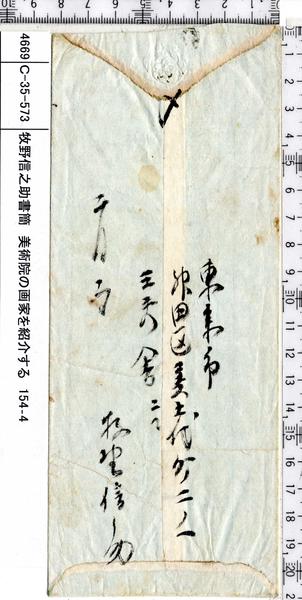 4669 C-35-573 牧野信之助書簡 美術院の画家を紹介する 154-4
〆
東京市
神田区美土代町二ノ一
三秀舎ニて
十月
牧野信之助